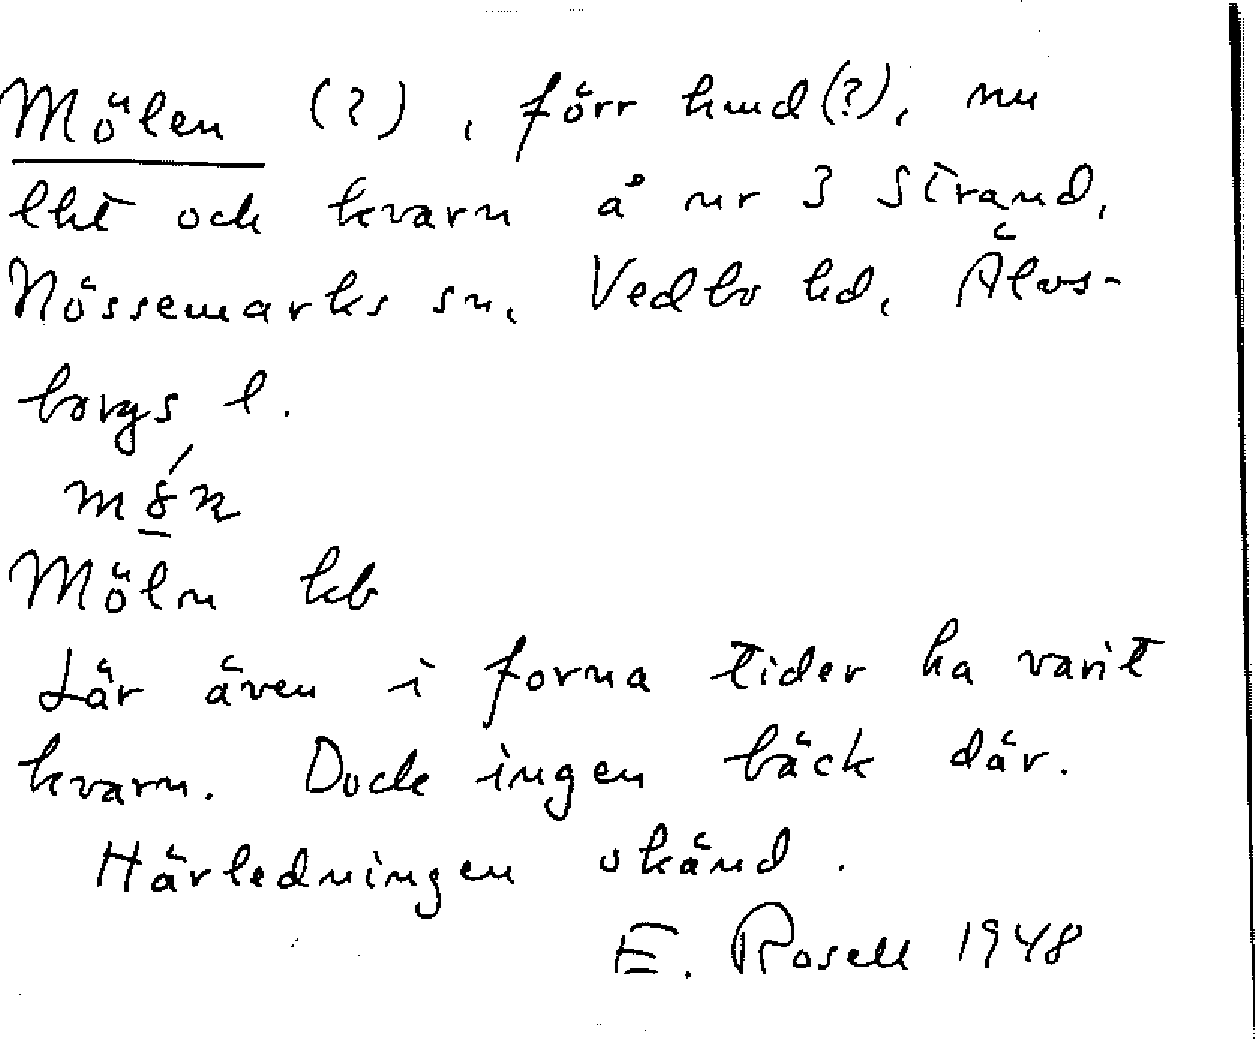 Mölen (?), förr hmd (?), nu
lht och kvarn å nr 3 Strand,
Nössemarks sn, Vedbo hd, Älvs-
borgs l.
Möln kb
Lär även i forna tider ha varit
kvarn. Dock ingen bäck där.
Härledningen okänd.
E. Rosell 1948